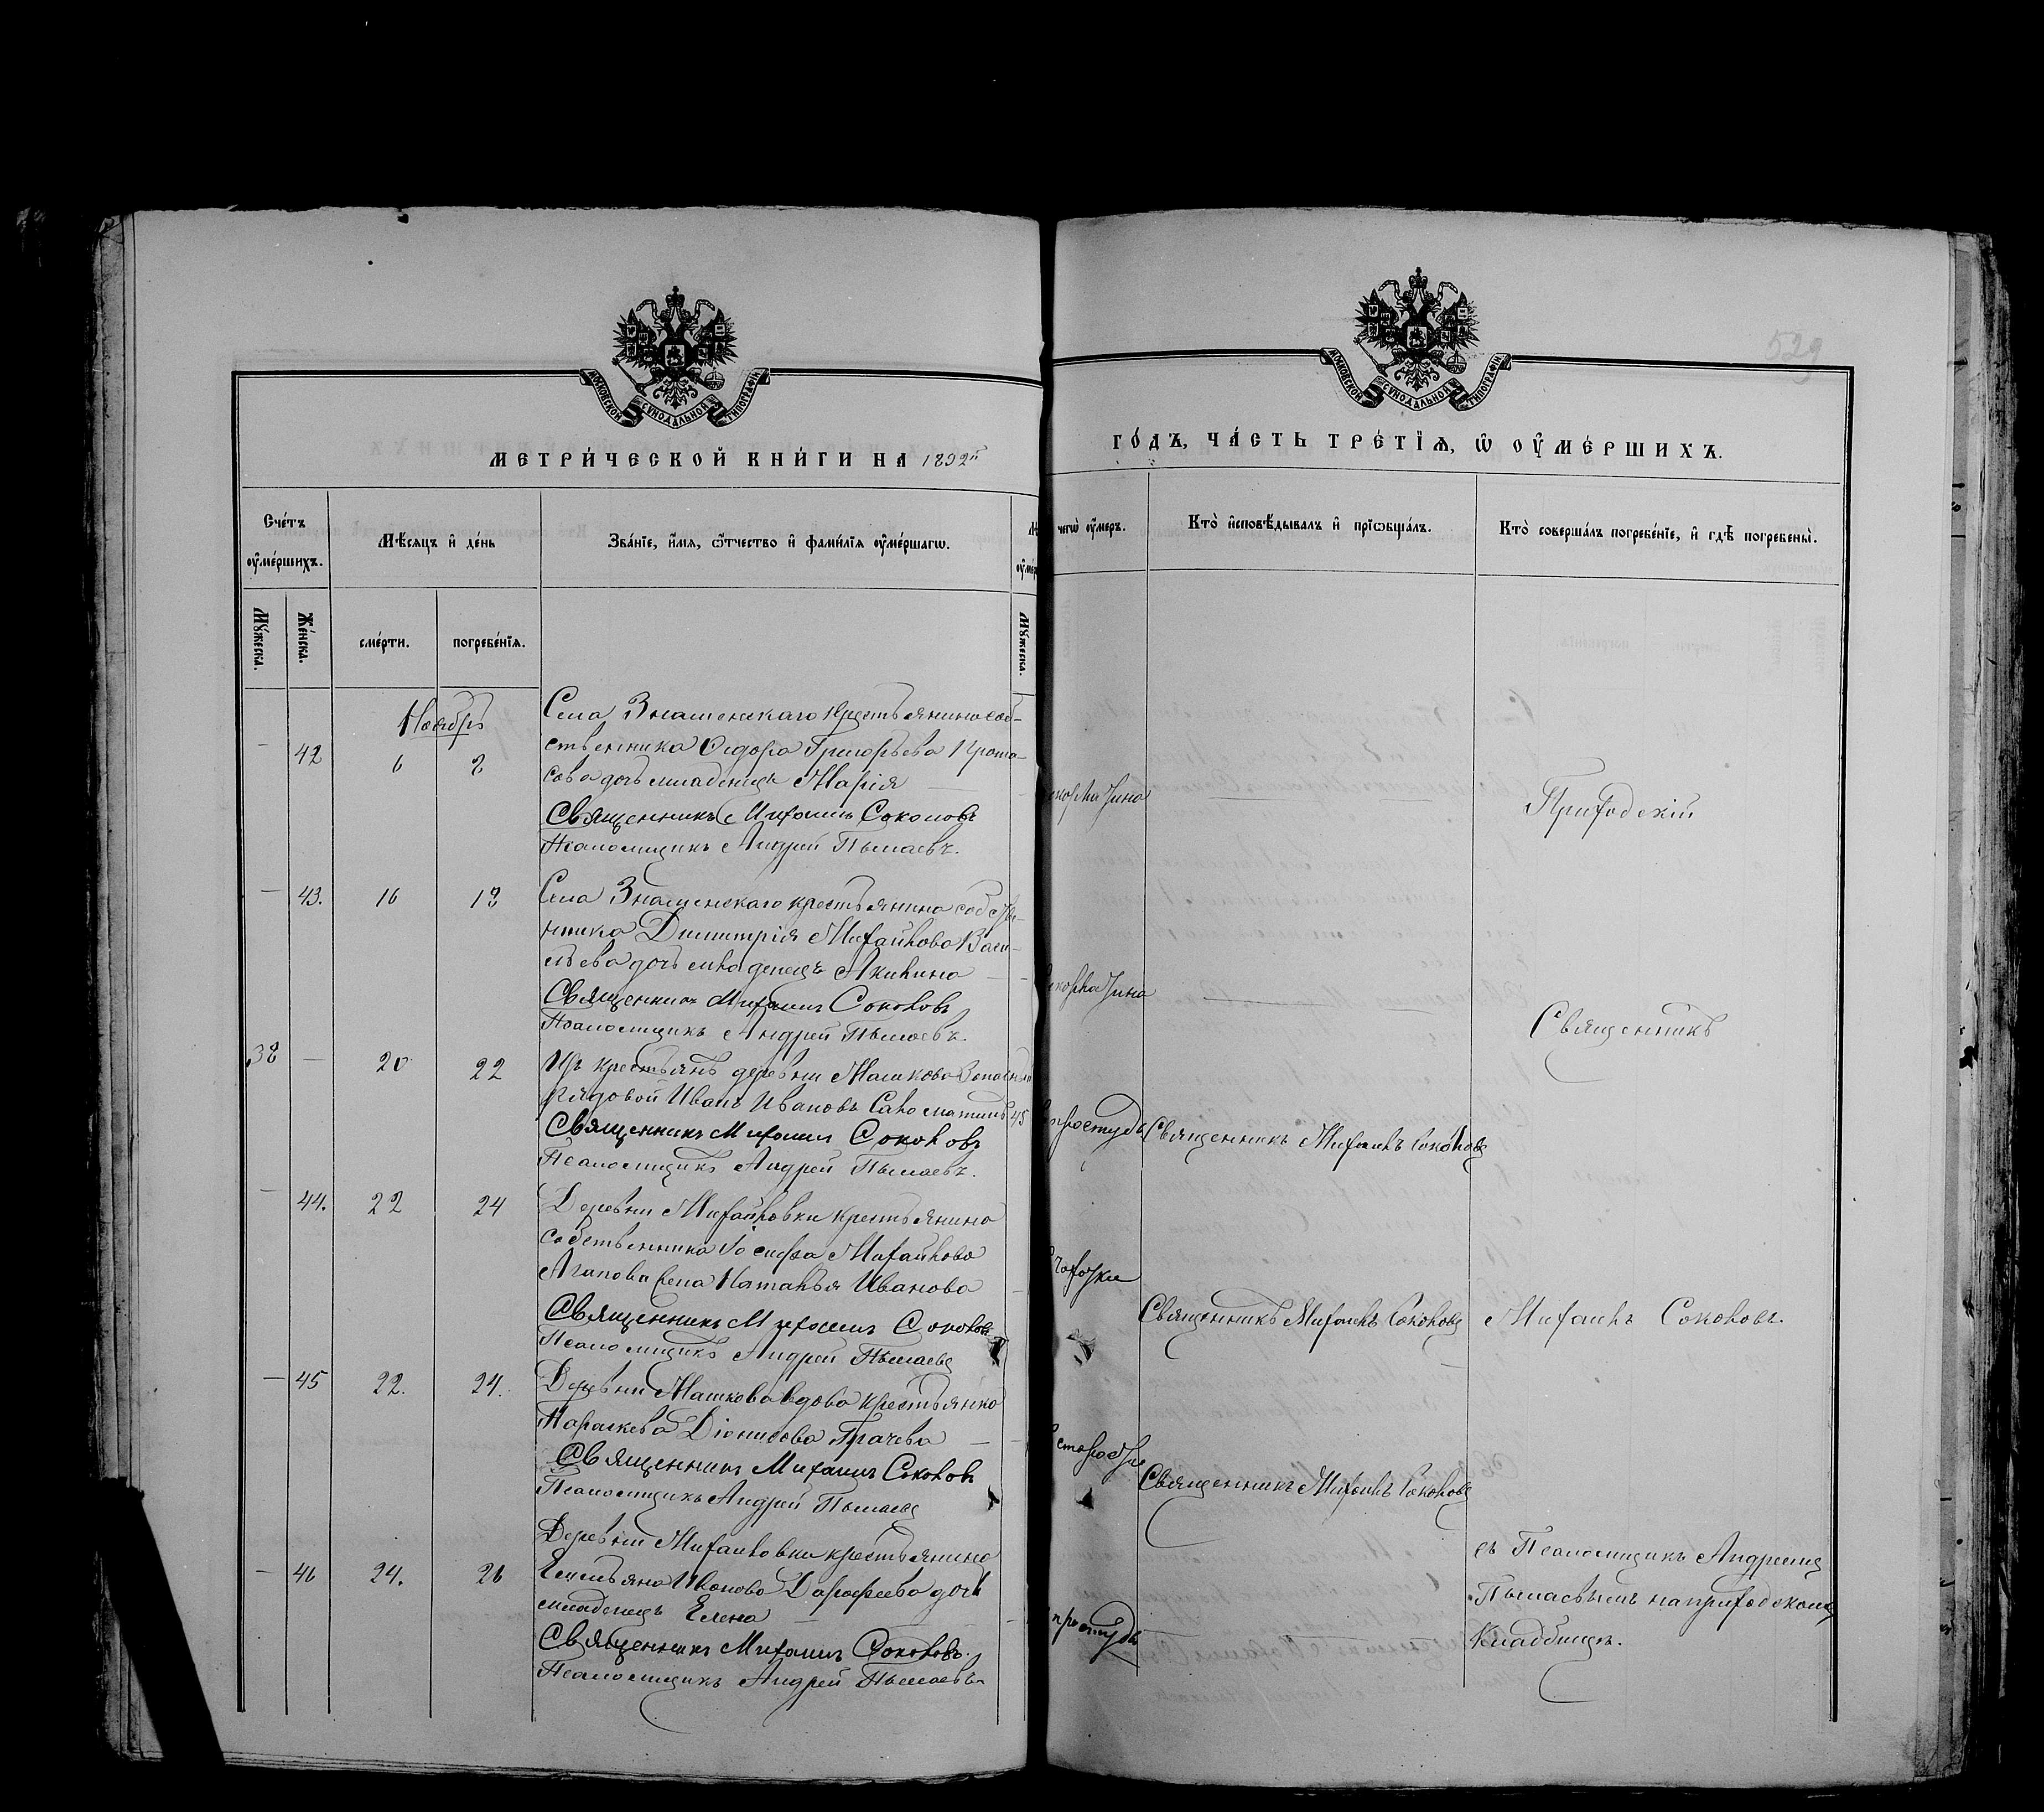 529
МОСКОВСКОЙ СУНОДАЛЬНОЙ ТИПОГРАФІИ
МОСКОВСКОЙ СУНОДАЛЬНОЙ ТИПОГРАФІИ
МЕТРИ́ЧЕСКОЙ КНИ́ГИ НА 1892й
ГО́ДЪ, ЧА́СТЬ ТРЕ́ТЇѦ, Ѡ ОУ҆МЕ́РШИХЪ.
Сче́тъ оу҆ме́ршихъ.
Мѣ́сяцъ и҆ де́нь
Зва́нїе, и҆́мѧ, ѻ҆́тчество и҆ фами́лїѧ оу҆ме́ршагѡ.
чегѡ̀ оу҆́меръ.
Кто̀ и҆сповѣ́дывалъ и҆ прїѻбща́лъ.
Кто̀ соверша́лъ погребе́нїе, и҆ гдѣ̀ погребены̀.
Мꙋ́жеска.
Же́нска.
сме́рти.
погребе́нїѧ.
Мꙋ́жеска.
Ноябрь
— 42 6 8
Села Знаменскаго крестьянина соб-
ственника Сидора Григорьева Прота-
сова дочь младенецъ Марія —
Священникъ Михаилъ Соколовъ
Псаломщикъ Андрей Пылаевъ.
Приходскій
— 43. 16 18
Села Знаменскаго крестьянина собстве-
нника Димитрія Михайлова Васи-
льева дочь младенецъ Акилина —
Священникъ Михаилъ Соколовъ
Псаломщикъ Андрей Пылаевъ.
Священникъ
38 — 20 22
Изъ крестьянъ деревни Машкова Запасный
рядовой Иванъ Ивановъ 45
Священникъ Михаилъ Соколовъ
Псаломщикъ Андрей Пылаевъ.
простуды
Священникъ Михаилъ Соколовъ
— 44. 22 24
Деревни Михайловки крестьянина
собственника Іосифа Михайлова
Агапова жена Наталья Иванова
Священникъ Михаилъ Соколовъ
Псаломщикъ Андрей Пылаевъ
чахотки
Священникъ Михаилъ Соколовъ
Михаилъ Соколовъ.
— 45 22. 24.
Деревни Машкова вдова крестьянка
Параскева Діонисова Грачева —
Священникъ Михаилъ Соколовъ
Псаломщикъ Андрей Пылаевъ
старости
Священникъ Михаилъ Соколовъ
— 46 24. 26
Деревни Михайловки крестьянина
Емельяна Иванова Дарофеева дочь
младенецъ Елена —
Священникъ Михаилъ Соколовъ.
Псаломщикъ Андрей Пылаевъ
простуды
съ Псаломщикъ Андреемъ
Пылаевымъ на приходскомъ
Кладбищѣ.